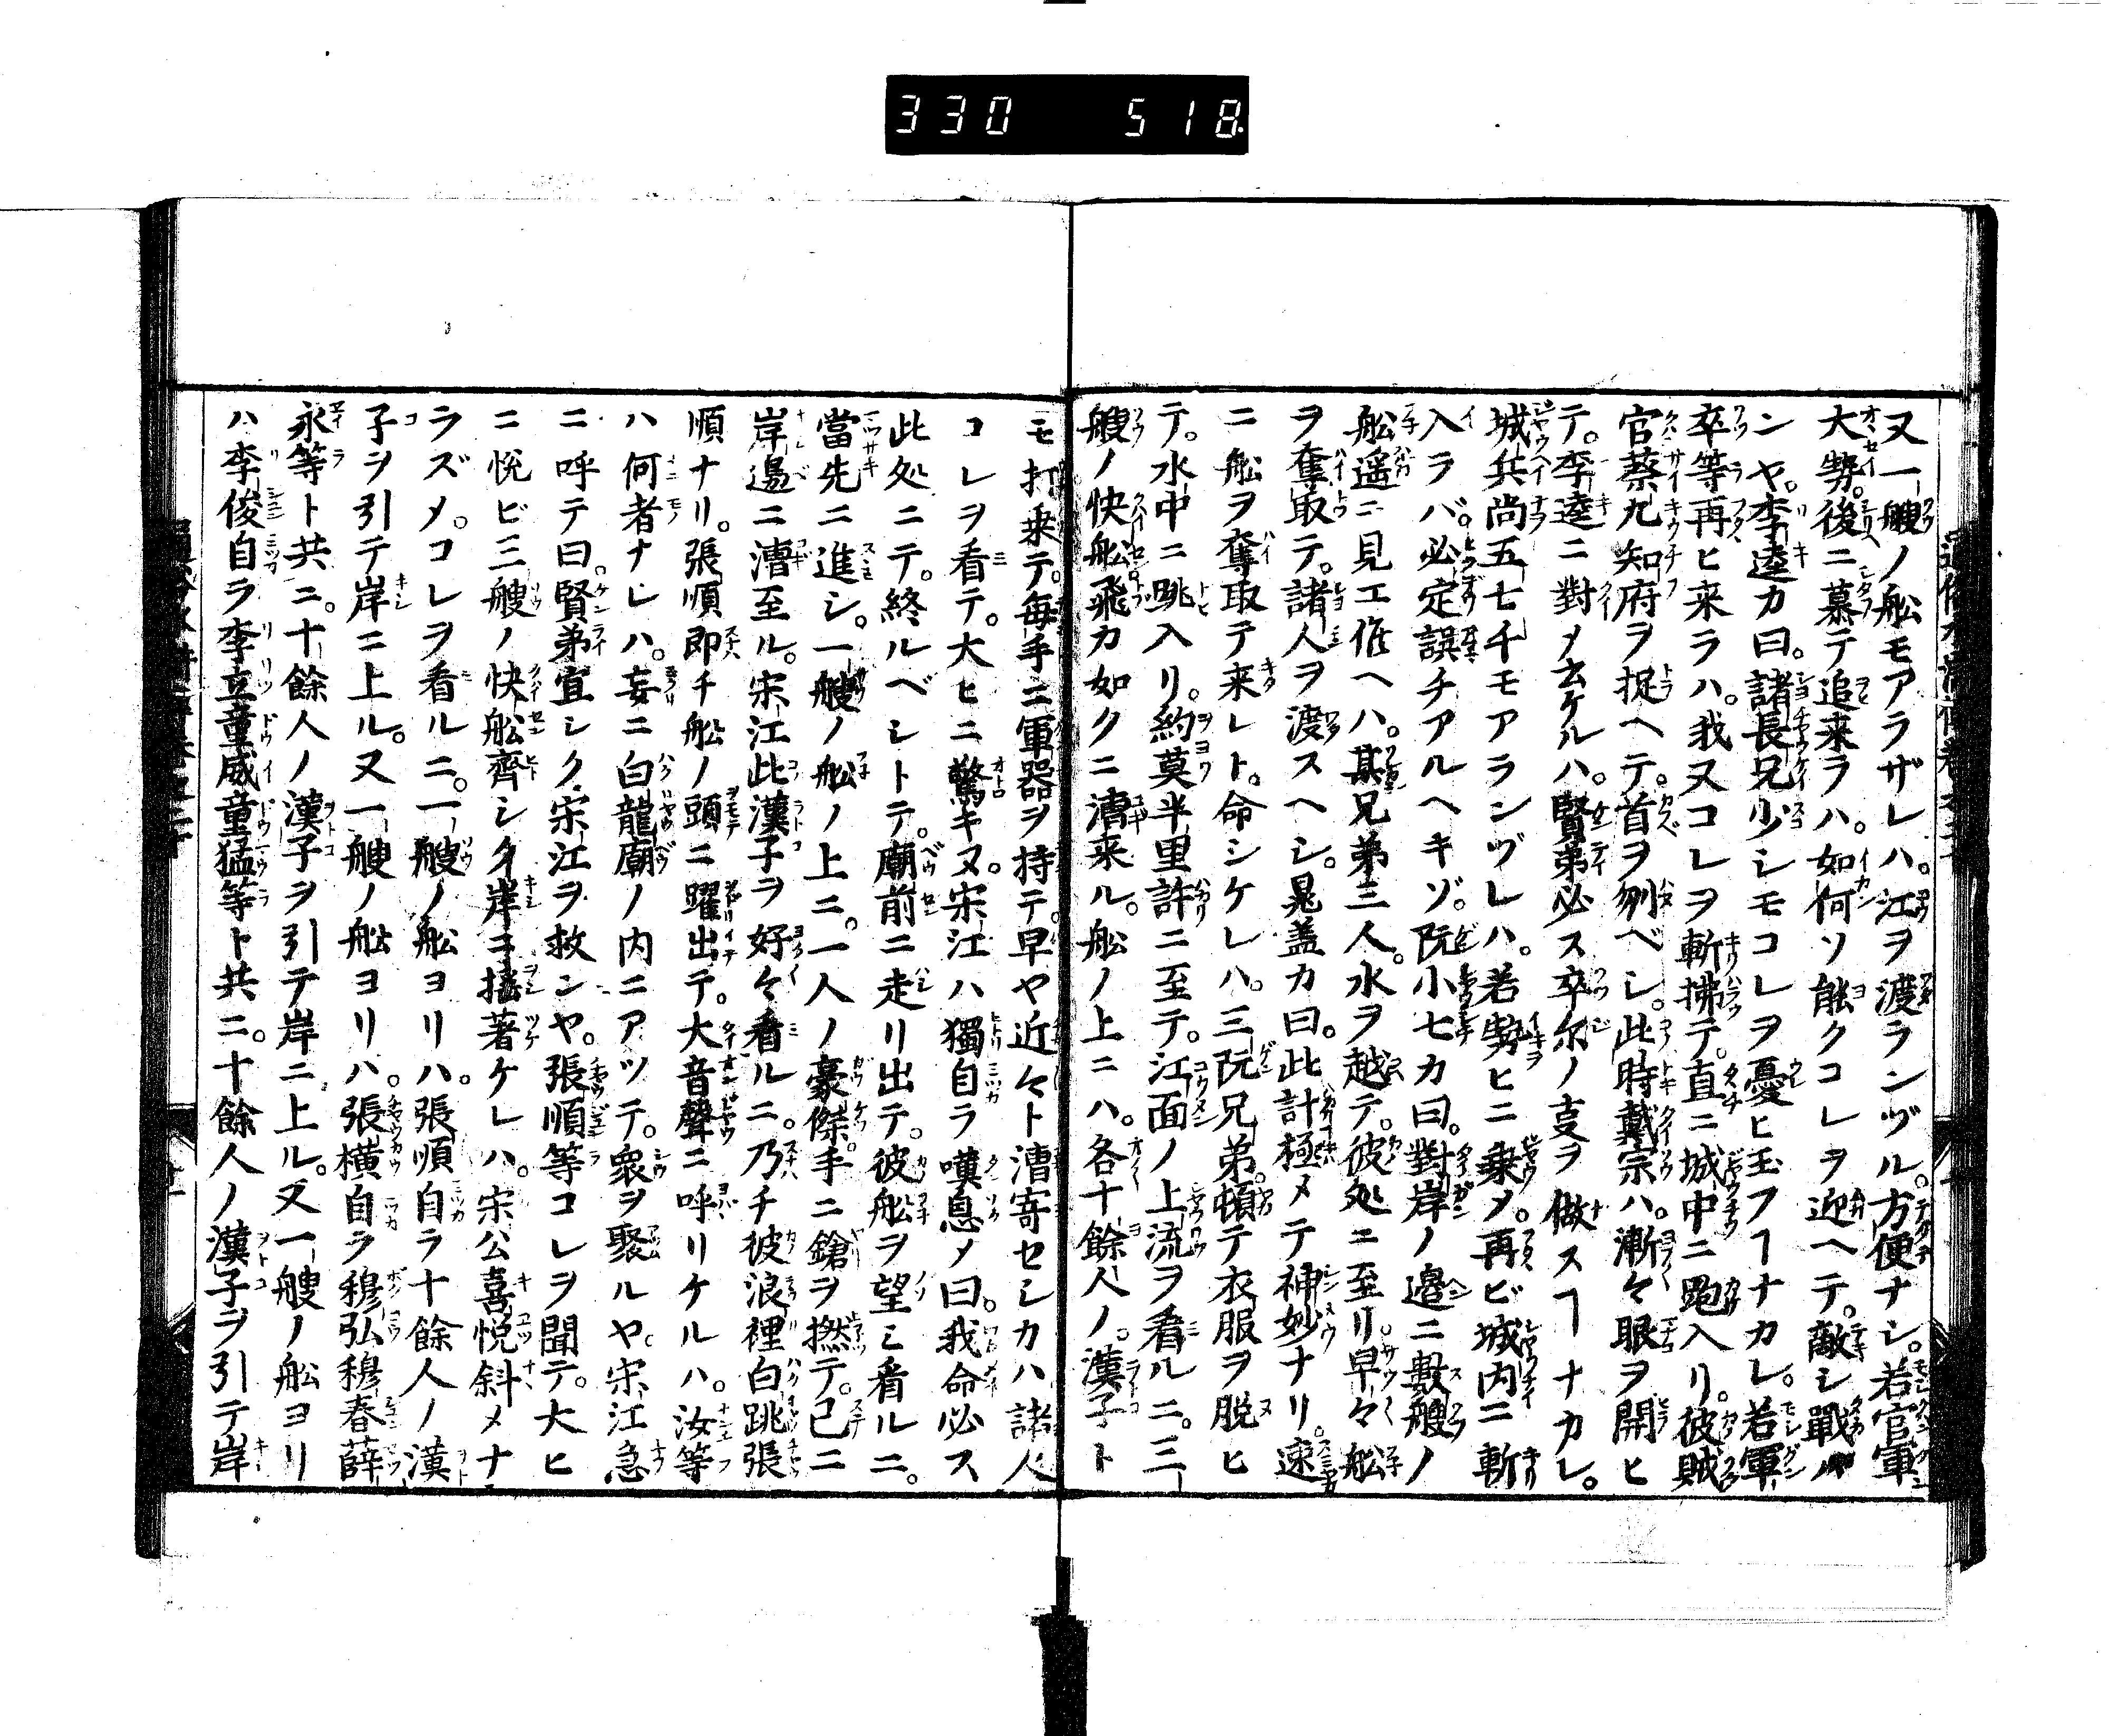 330 518
又一艘ノ舩モアラザレハ。江ヲ渡ランヅル。方便ナシ。若官軍
大勢。後ニ慕テ追来ラハ。如何ソ能クコレヲ迎ヘテ。敵シ戰ハ
ンヤ。李逵カ曰。諸長兄少シモコレヲ憂ヒ玉フヿナカレ。若軍
卒等再ヒ来ラハ。我又コレヲ斬拂テ。直ニ城中ニ跑入リ。彼賊
官蔡九知府ヲ捉ヘテ。首ヲ刎ベシ。此時戴宗ハ。漸々眼ヲ開ヒ
テ。李逵ニ對メ云ケルハ。賢弟必ス卒尓ノ㕝ヲ做スヿナカレ。
城兵尚五七千モアランヅレハ。若勢ヒニ乗メ。再ビ城内ニ斬
入ラバ。必定誤チアルヘキゾ。阮小七カ曰。對岸ノ邉ニ數艘ノ
舩遥ニ見エ候ヘハ。某兄弟三人。水ヲ越テ。彼処ニ至リ。早々舩
ヲ奪取テ。諸人ヲ渡スヘシ。晁盖カ曰。此計極メテ神妙ナリ。速
ニ舩ヲ奪取テ来レト。命シケレハ。三阮兄弟。頓テ衣服ヲ脱ヒ
テ。水中ニ跳入リ。約莫半里許ニ至テ。江面ノ上流ヲ看ルニ。三
艘ノ快舩。飛カ如クニ漕来ル。舩ノ上ニハ。各十餘人ノ。漢子ト
モ打乗テ。毎手ニ軍器ヲ持テ。早ヤ近々ト漕寄セシカハ諸人
コレヲ看テ。大ヒニ驚キヌ。宋江ハ獨自ラ嘆息メ曰。我命必ス
此処ニテ。終ルベシトテ。廟前ニ走リ出テ。彼舩ヲ望ミ看ルニ。
當先ニ進シ。一艘ノ舩ノ上ニ。一人ノ豪傑。手ニ鎗ヲ撚テ。已ニ
岸邉ニ漕至ル。宋江此漢子ヲ好々看ルニ。乃チ彼浪裡白跳張
順ナリ。張順即チ舩ノ頭ニ躍出テ。大音聲ニ呼リケルハ。汝等
ハ何者ナレハ。妄ニ白龍廟ノ内ニアツテ。衆ヲ聚ルヤ。宋江急
ニ呼テ曰。賢弟宜シク宋江ヲ救ンヤ。張順等コレヲ聞テ。大ヒ
ニ悦ビ三艘ノ快舩齊シク岸ニ揺著ケレハ。宋公喜悦斜メナ
ラズメ。コレヲ看ルニ。一艘ノ舩ヨリハ。張順自ラ十餘人ノ漢
子ヲ引テ岸ニ上ル。又一艘ノ舩ヨリハ。張橫自ラ穆弘穆春薛
永等ト共ニ。十餘人ノ漢子ヲ引テ岸ニ上ル。又一艘ノ舩ヨリ
ハ李俊自ラ李立童威童猛等ト共ニ。十餘人ノ漢子ヲ引テ岸